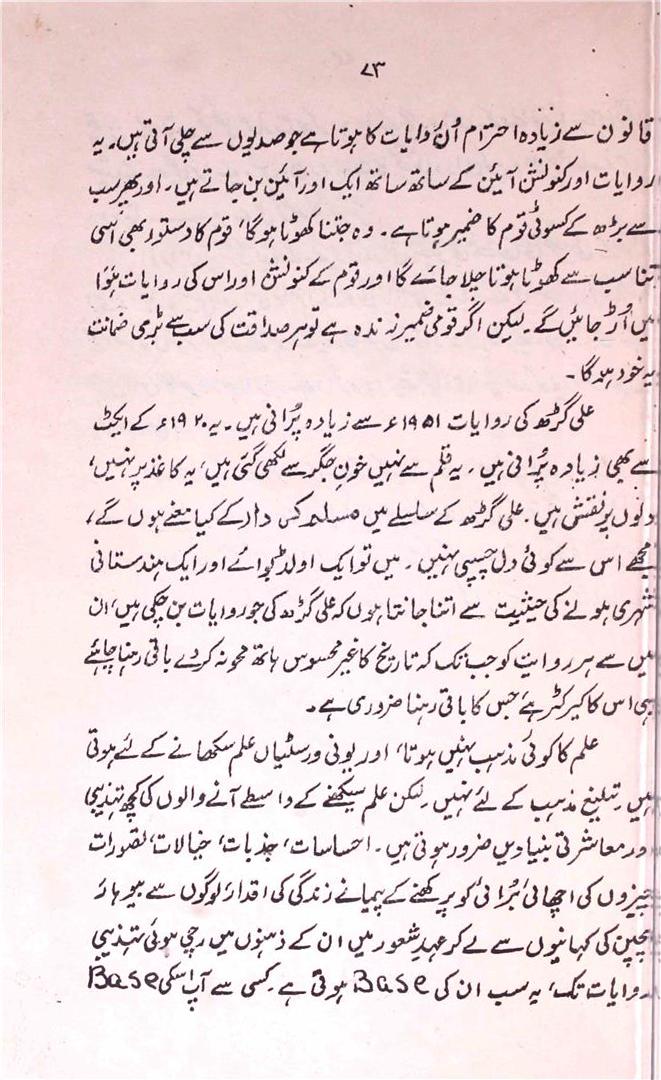 ۷۳
قانون سے زیادہ احترام اُن روایات کا ہوتا ہے جو صدیوں سے چلی آتی ہیں۔ یہ
روایات اور کنونشن آئین کے ساتھ ساتھ ایک اور آئین بن جاتے ہیں۔ اور پھر سب
سے بڑھ کے کسوٹی قوم کا ضمیر ہوتا ہے۔ وہ جتنا کھوٹا ہوگا، قوم کا دستور بھی اسی
تناسب سے کھوٹا ہوتا چلا جائے گا اور قوم کے کنونشن اور اس کی روایات ہَوا
میں اُڑ جائیں گے۔ لیکن اگر قومی ضمیر زندہ ہے تو ہر صداقت کی سب سے بڑی ضمانت
یہ خود ہوگا۔
علی گڑھ کی روایات ۱۹۵۱ء سے زیادہ پُرانی ہیں۔ یہ ۱۹۲۰ء کے ایکٹ
سے بھی زیادہ پُرانی ہیں۔ یہ قلم سے نہیں خونِ جگر سے لکھی گئی ہیں، یہ کاغذ پر نہیں،
دلوں پر نقش ہیں۔ علی گڑھ کے سلسلے میں مسلم کردار کے کیا معنے ہوں گے،
مجھے اس سے کوئی دل چسپی نہیں۔ میں تو ایک اولڈ بوائے اور ایک ہندستانی
شہری ہونے کی حیثیت سے اتنا جانتا ہوں کہ علی گڑھ کی جو روایات بن چکی ہیں، ان
میں سے ہر روایت کو جب تک کہ تاریخ کا غیر محسوس ہاتھ محو نہ کر دے باقی رہنا چاہئے
یہی اس کا کیرکٹر ہے جس کا باقی رہنا ضروری ہے۔
علم کا کوئی مذہب نہیں ہوتا، اور یونی ورسٹیاں علم سکھانے کے لئے ہوتی
ہیں۔ تبلیغ مذہب کے لئے نہیں۔ لکن علم سیکھنے کے واسطے آنے والوں کی کچھ تہذیبی
اور معاشرتی بنیادیں ضرور ہوتی ہیں۔ احساسات، جذبات، خیالات، تصورات
چیزوں کی اچھائی بُرائی کو پرکھنے کے پیمانے زندگی کی اقدار، لوگوں سے بیوہار
بچپن کی کہانیوں سے لے کر عہدِ شعور میں ان کے ذہنوں میں رچی ہوئی تہذیبی
روایات تک، یہ سب ان کی Base ہوتی ہے۔ کسی سے آپ اسکی Base